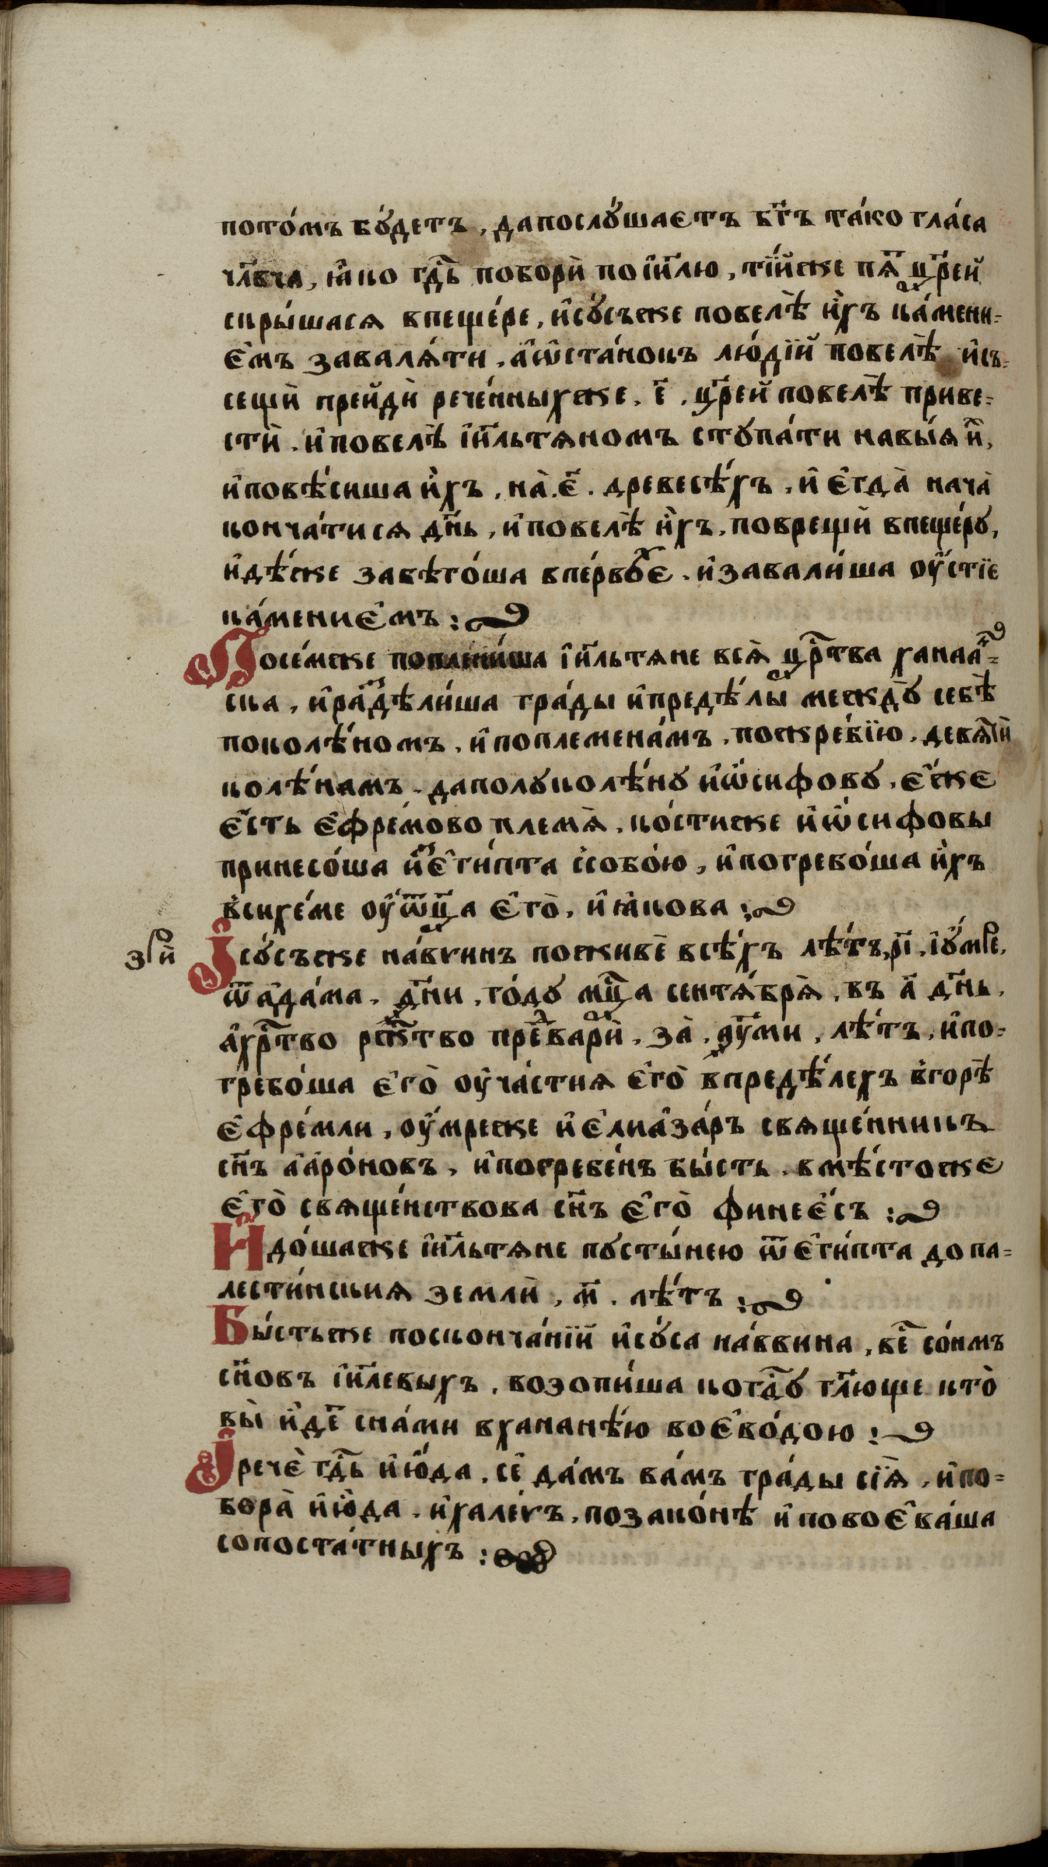 потѡ́мъ бꙋ́детъ, да послꙋ́шаетъ бг҃ъ та́ко гла́са
чл҃вча, ꙗ҆ко гдⷭ҇ь побори̏ по і҆и҃лю, ті́йже пѧⷮ цр҃е́й
скры́шасѧ впеще́ре, и҆сꙋ́съже повелѣ̀ и҆́хъ ка́мени-
є҆мъ завалѧ́ти, а҆ѡ҆ста́нокъ лю́дїй повелѣ̀ и҆съ-
сещѝ прейдѝ рече́нныхже. є҃. цр҃е́й повелѣ̀ приве-
стѝ. и҆повелѣ̀ і҆и҃льтѧномъ ступа́ти навы́ѧ и҆̀,
и҆повѣ́сиша и҆́хъ, на̀.є҃. древесѣ́хъ. и҆ є҆гда̀ нача̀
конча́тисѧ дн҃ь, и҆повелѣ̀ и҆́хъ, поврещѝ впеще́ру,
и҆дѣ́же забѣго́ша впе́рвое. и҆завали́ша оу҆́стїе
ка́мениє҆мъ:
Посе́мже поплени́ша і҆и҃льтѧне всѧ̀ црⷭ҇тва ханаа́н-
ска, и҆раздѣли́ша гра́ды и҆предѣ́лы междꙋ̀ себѣ̀
поколѣ́номъ, и҆поплемена́мъ, пожре́бїю, девѧтїй
колѣ́намъ. даполуколѣ́ну и҆ѡ҆́сифову, є҆́же
є҆́сть є҆фре́мово племѧ̀, ко́стиже и҆ѡ҆́сифовы
принесо́ша и҆зъє҆ги́пта ссобо́ю, и҆погребо́ша и҆́хъ
всихе́ме оу҆ѿц҃а є҆гѡ̀, и҆ꙗ҆́кова:
Ісꙋ́съже на́ввинъ поживѐ всѣ́хъ лѣ́тъ,р҃і, і҆оу҆́мре,
ѿа҆да́ма, дн҃и, го́ду мцⷭ҇а сентѧ́брѧ̀, въ а҃ дн҃ь,
а҆хрⷭ҇тво рожⷭ҇тво предварѝ, за̀, ꙗ҆у҃ми, лѣ́тъ, и҆по-
гребо́ша є҆гѡ̀ оу҆ча́стиѧ є҆гѡ̀ впредѣ́лехъ вгорѣ̀
є҆фре́мли, оу҆́мреже и҆ є҆лиа҆за́ръ свѧще́нникъ
сн҃ъ а҆аро́новъ, и҆погребе́нъ бы́сть, вмѣ́стоже
є҆гѡ̀ свѧще́нствова сн҃ъ є҆гѡ̀ финее́съ:
И҆до́шаже і҆и҃льтѧне пусты́нею ѿє҆ги́пта до па-
лести́нскиѧ землѝ, м҃. лѣ́тъ:
Бы́стьже посконча́нїй и҆сꙋ́са на́ввина, ве́сь со́нмъ
сн҃овъ і҆и҃левыхъ, возопи́ша когдꙋ̀ гл҃юще кто̀
бы̀ и҆де́тъ сна́ми вхананѣ́ю воє҆во́дою:
І҆речѐ гдⷭ҇ь и҆ю҆да, се̏ да́мъ ва́мъ гра́ды сїѧ̀, и҆по-
бора̀ и҆ю҆́да, и҆хале́въ, позако́нѣ и҆повоє҆ва́ша
сопоста́тныхъ: